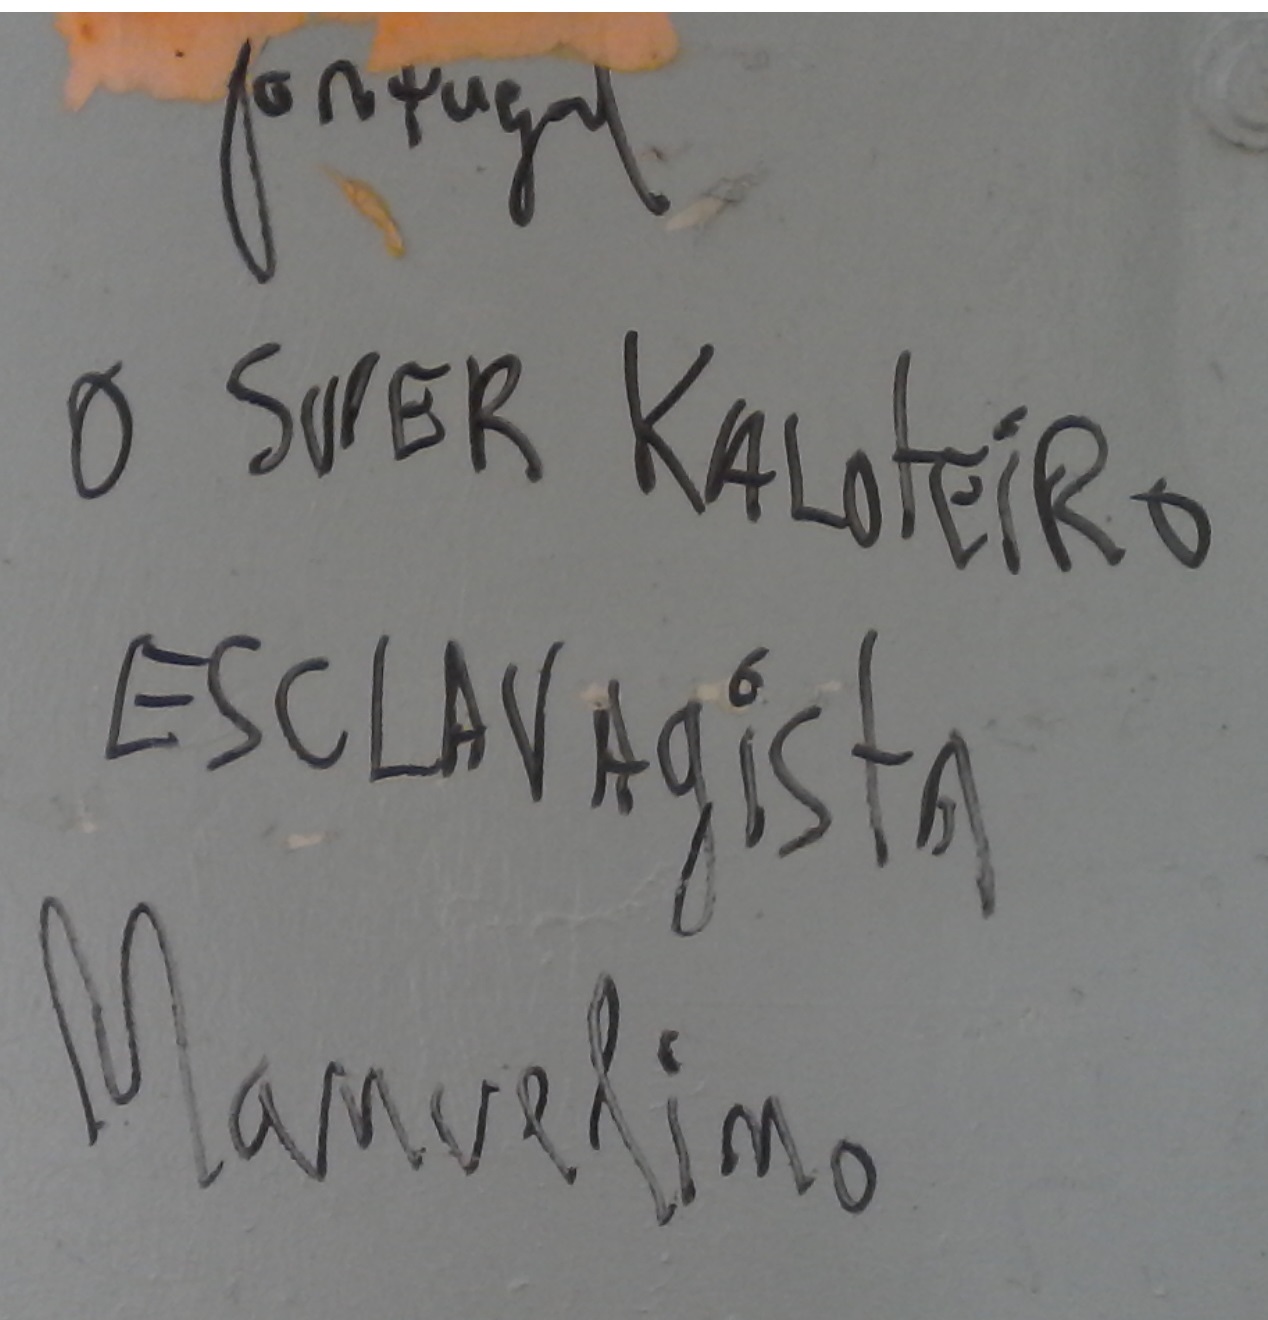 portugal
O SUPER KALOtEiRo
ESCLAVAgista
Manuelino